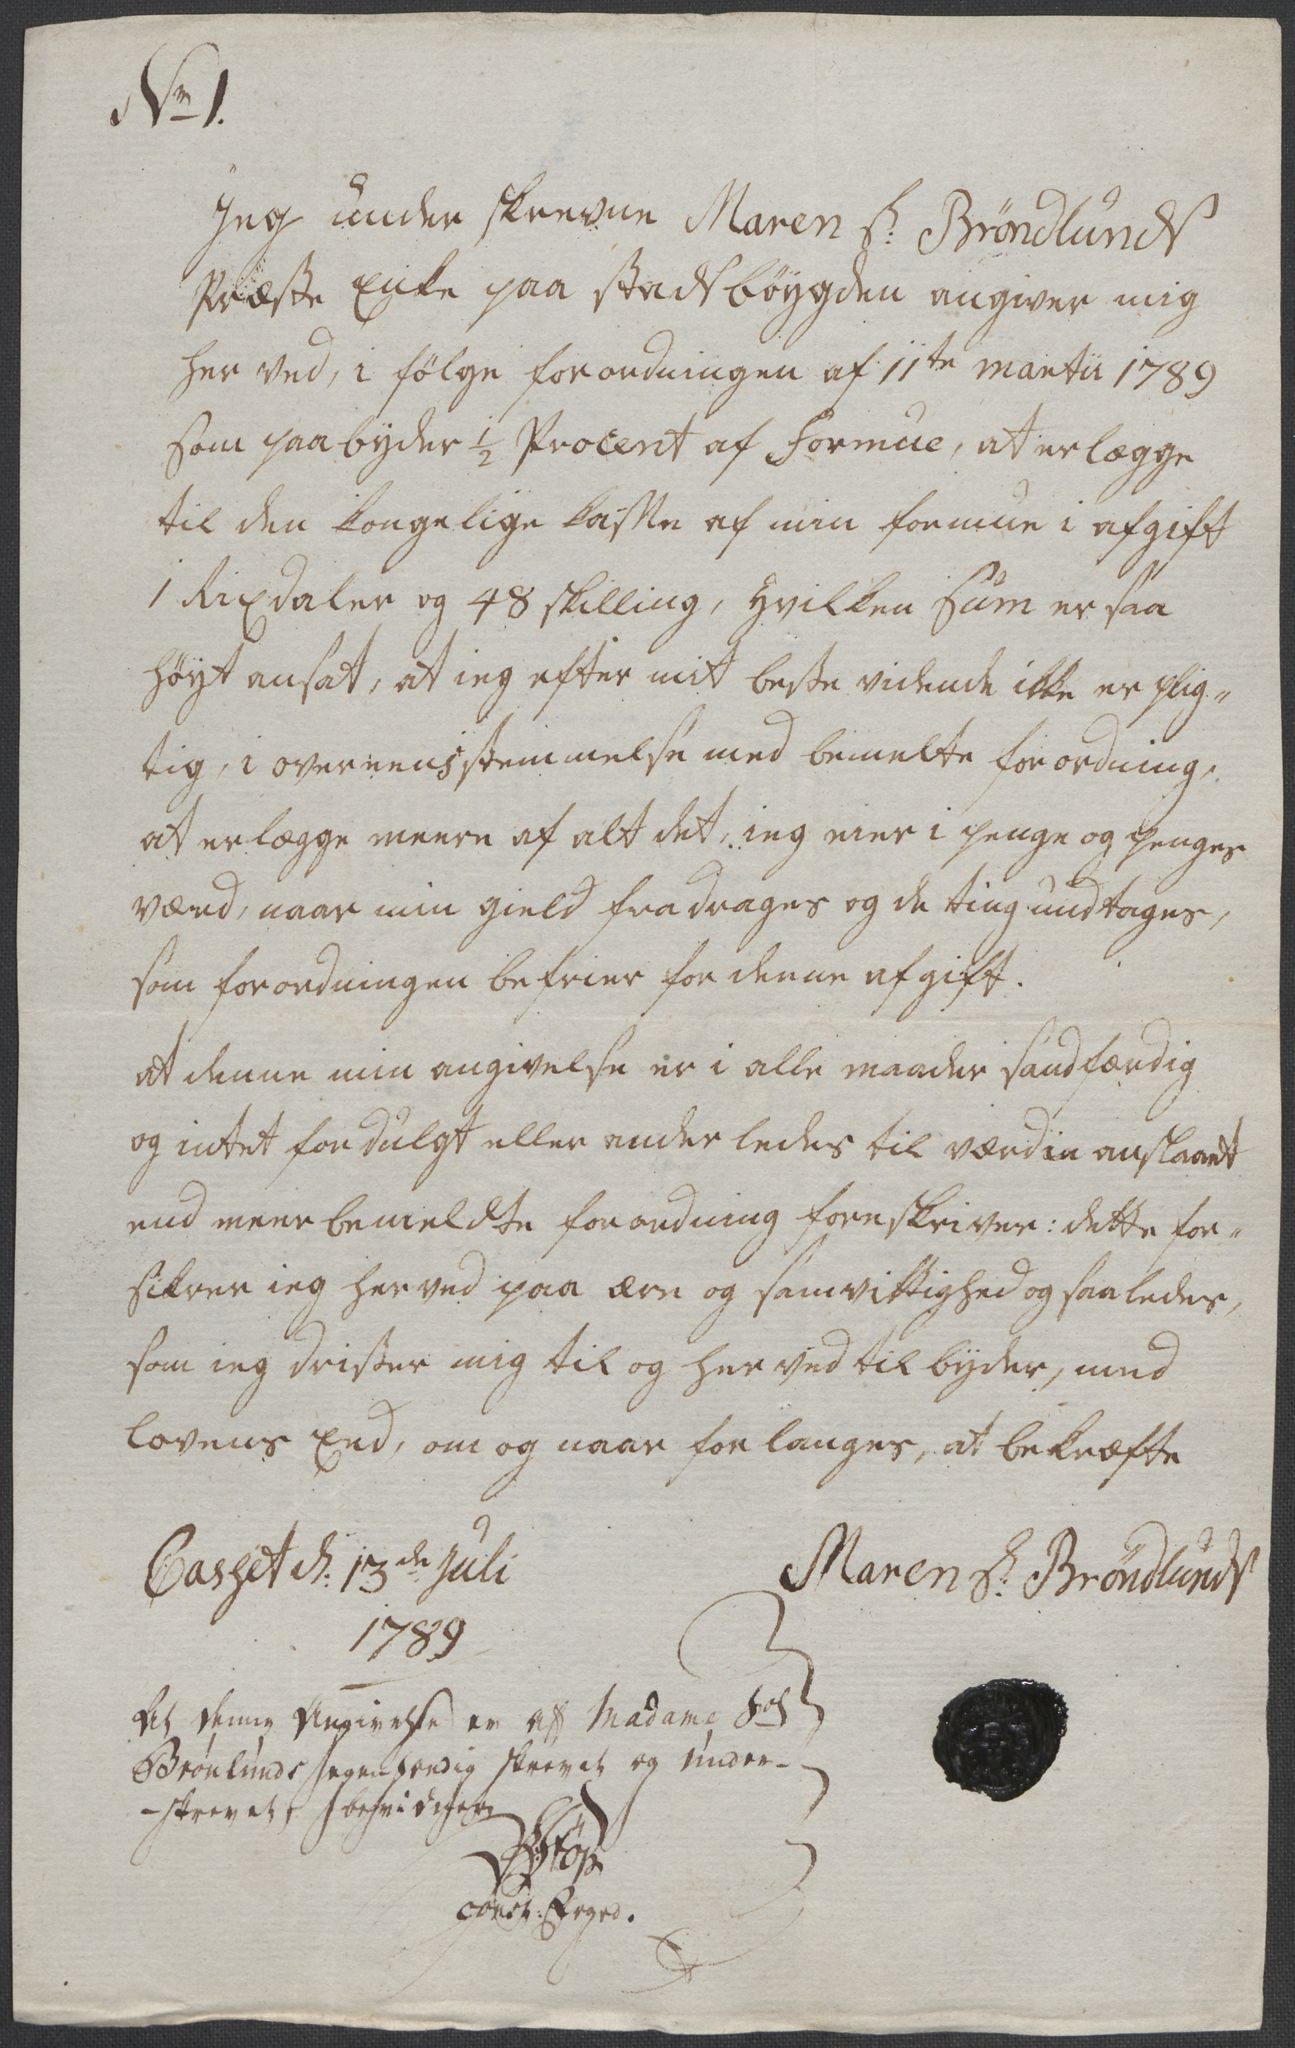 No 1.
Jeg under skrevne Maren S: Bröndlunds
Præste Enke paa stadsböygden angiver mig
her ved, i fölge forordningen af 11te martii 1789
som paabyder 1/2 Procent af Formue, at erlægge
til den kongelige kasse af min formue i afgift
1 Rixdaler og 48 skilling, hvilken Sum er saa
höyt ansat, at ieg efter mit beste vidende ikke er plig-
tig, i overeensstemmelse med bemelte forordning,
at erlægge meere af alt det, ieg eier i penge og penges
værd, naar min gield fradrages og de ting undtages,
som forordningen befrier for denne afgift.
at denne min angivelse er i alle maader sandfærdig
og intet fordulgt eller anderledes til værdie anslaaet
end meerbemeldte forordning foreskriver: dette for-
sikrer ieg herved paa ære og samvittighed og saaledes,
som ieg drister mig til og herved tilbyder, med
lovens Eed, om og naar forlanges, at bekræfte
d: 13de Juli
1789
Maren S: Bröndlunds
At denne Angivelse er af Madame Sal
Brönlunds egenhændig skrevet og under-
-skrevet, bevidner